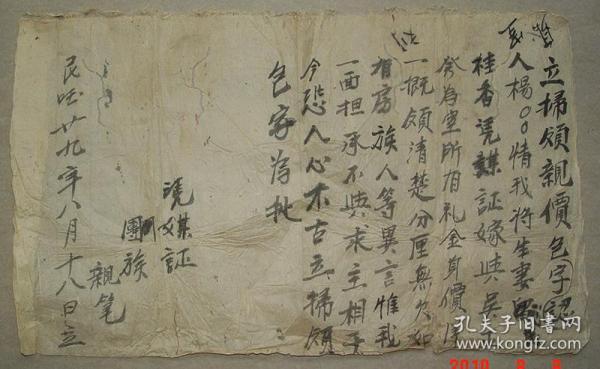 立掃領親價包字認
人楊〇〇情我將生妻
桂香凭謀証嫁與吳
為室所有礼金身價洋
一概領清楚分厘無欠如
有房族人等異言惟我
一面担承不與求主相干
今恐人心不古立掃領
包字為批
凭媒証
團族
親笔
民国廿九年八月十八日立
孔夫子旧书网
www.kongfz.com